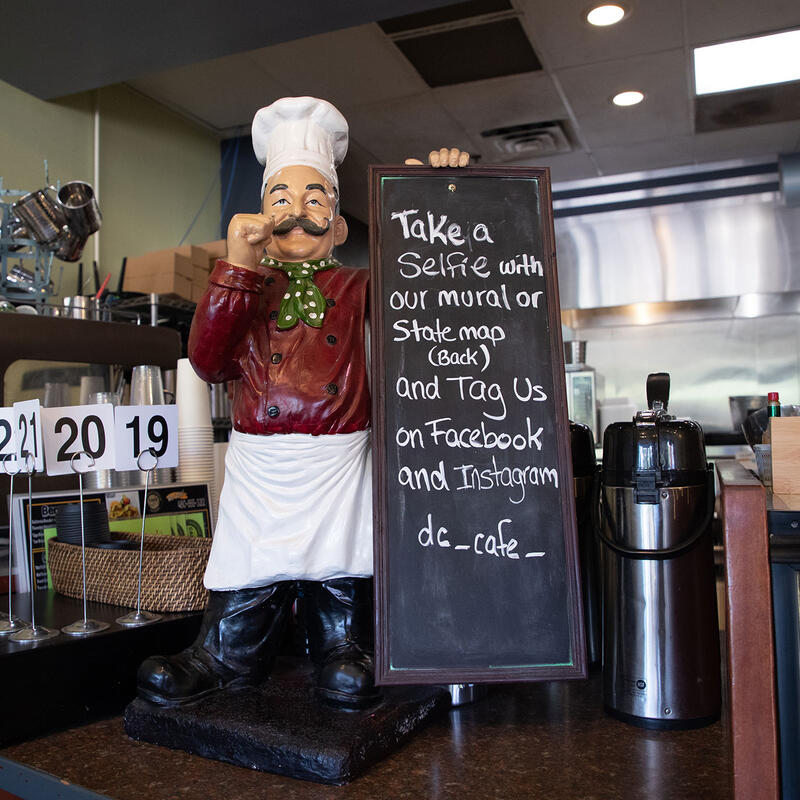 Take a
Selfie with
our mural or
State map
(Back)
and Tag Us
on Facebook
and Instagram
dc_cafe_
2
21
20
19